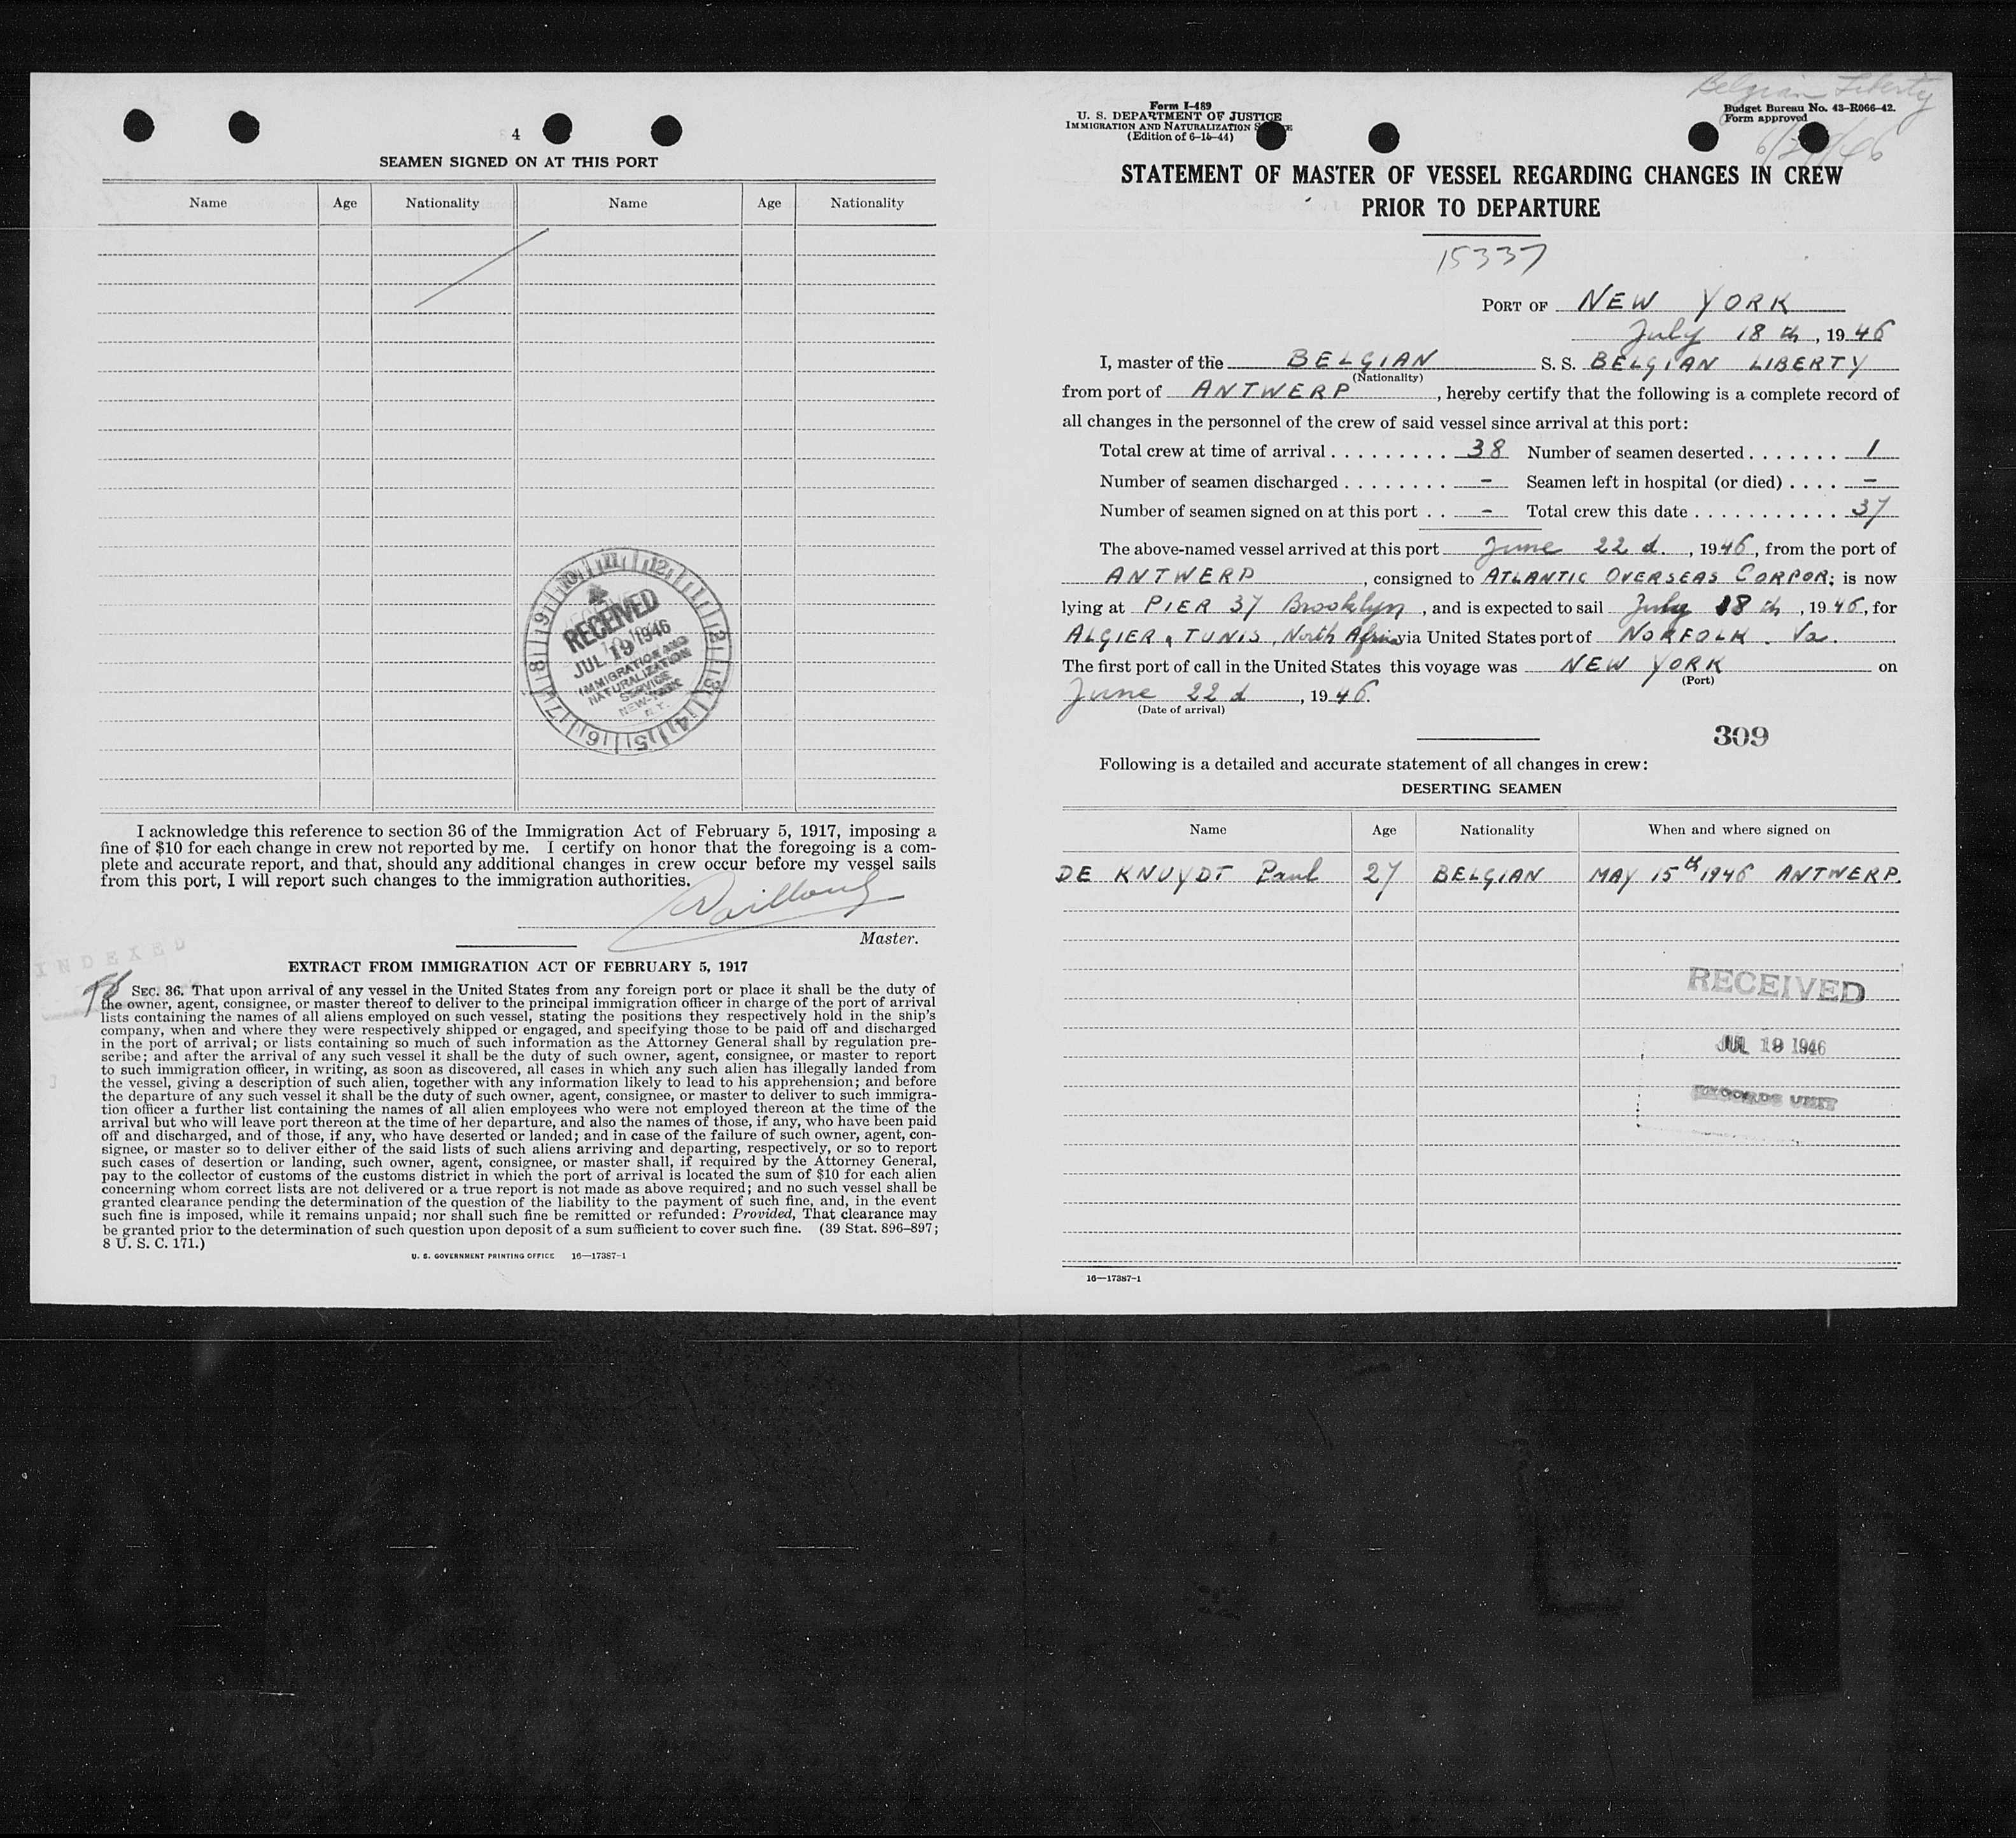 4
SEAMEN SIGNED ON AT THIS PORT
Name Age Nationality Name Age Nationality
RECEIVED
JUL 19 1946
IMMIGRATION AND
NATURALIZATION
SERVICE
NEW YORK
N. Y.
I acknowledge this reference to section 36 of the Immigration Act of February 5, 1917, imposing a
fine of $10 for each change in crew not reported by me. I certify on honor that the foregoing is a com-
plete and accurate report, and that, should any additional changes in crew occur before my vessel sails
from this port, I will report such changes to the immigration authorities.
Master.
INDEXED
EXTRACT FROM IMMIGRATION ACT OF FEBRUARY 5, 1917
SEC. 36. That upon arrival of any vessel in the United States from any foreign port or place it shall be the duty of
the owner, agent, consignee, or master thereof to deliver to the principal immigration officer in charge of the port of arrival
lists containing the names of all aliens employed on such vessel, stating the positions they respectively hold in the ship's
company, when and where they were respectively shipped or engaged, and specifying those to be paid off and discharged
in the port of arrival; or lists containing so much of such information as the Attorney General shall by regulation pre-
scribe; and after the arrival of any such vessel it shall be the duty of such owner, agent, consignee, or master to report
to such immigration officer, in writing, as soon as discovered, all cases in which any such alien has illegally landed from
the vessel, giving a description of such alien, together with any information likely to lead to his apprehension; and before
the departure of any such vessel it shall be the duty of such owner, agent, consignee, or master to deliver to such immigra-
tion officer a further list containing the names of all alien employees who were not employed thereon at the time of the
arrival but who will leave port thereon at the time of her departure, and also the names of those, if any, who have been paid
off and discharged, and of those, if any, who have deserted or landed; and in case of the failure of such owner, agent, con-
signee, or master so to deliver either of the said lists of such aliens arriving and departing, respectively, or so to report
such cases of desertion or landing, such owner, agent, consignee, or master shall, if required by the Attorney General,
pay to the collector of customs of the customs district in which the port of arrival is located the sum of $10 for each alien
concerning whom correct lists are not delivered or a true report is not made as above required; and no such vessel shall be
granted clearance pending the determination of the question of the liability to the payment of such fine, and, in the event
such fine is imposed, while it remains unpaid; nor shall such fine be remitted or refunded: Provided, That clearance may
be granted prior to the determination of such question upon deposit of a sum sufficient to cover such fine. (39 Stat. 896-897;
8 U. S. C. 171.)
U. S. GOVERNMENT PRINTING OFFICE 16—17387-1
Belgian Liberty
Form I-489
U. S. DEPARTMENT OF JUSTICE
IMMIGRATION AND NATURALIZATION
(Edition of 6-15-44)
Budget Bureau No. 43-R066-42.
Form approved
STATEMENT OF MASTER OF VESSEL REGARDING CHANGES IN CREW
PRIOR TO DEPARTURE
15337
PORT OF NEW YORK
July 18 th, 1946
I, master of the BELGIAN S. S. BELGIAN LIBERTY
(Nationality)
from port of ANTWERP, hereby certify that the following is a complete record of
all changes in the personnel of the crew of said vessel since arrival at this port:
Total crew at time of arrival . . . . . . . . . 38 Number of seamen deserted . . . . . . . 1
Number of seamen discharged . . . . . . . . - Seamen left in hospital (or died) . . . . -
Number of seamen signed on at this port . . - Total crew this date . . . . . . . . . . . . 37
The above-named vessel arrived at this port June 22 d., 1946, from the port of
ANTWERP, consigned to ATLANTIC OVERSEAS CORPOR; is now
lying at PIER 37 Brooklyn, and is expected to sail July 18 th, 1946, for
ALGIER, TUNIS, North Africa via United States port of NORFOLK. Va.
The first port of call in the United States this voyage was NEW YORK on
(Port)
June 22 d, 1946.
(Date of arrival)
309
Following is a detailed and accurate statement of all changes in crew:
DESERTING SEAMEN
Name Age Nationality When and where signed on
DE KNUYDT Paul 27 BELGIAN MAY 15th 1946 ANTWERP.
RECEIVED
JUL 19 1946
RECORDS UNIT
16—17387-1